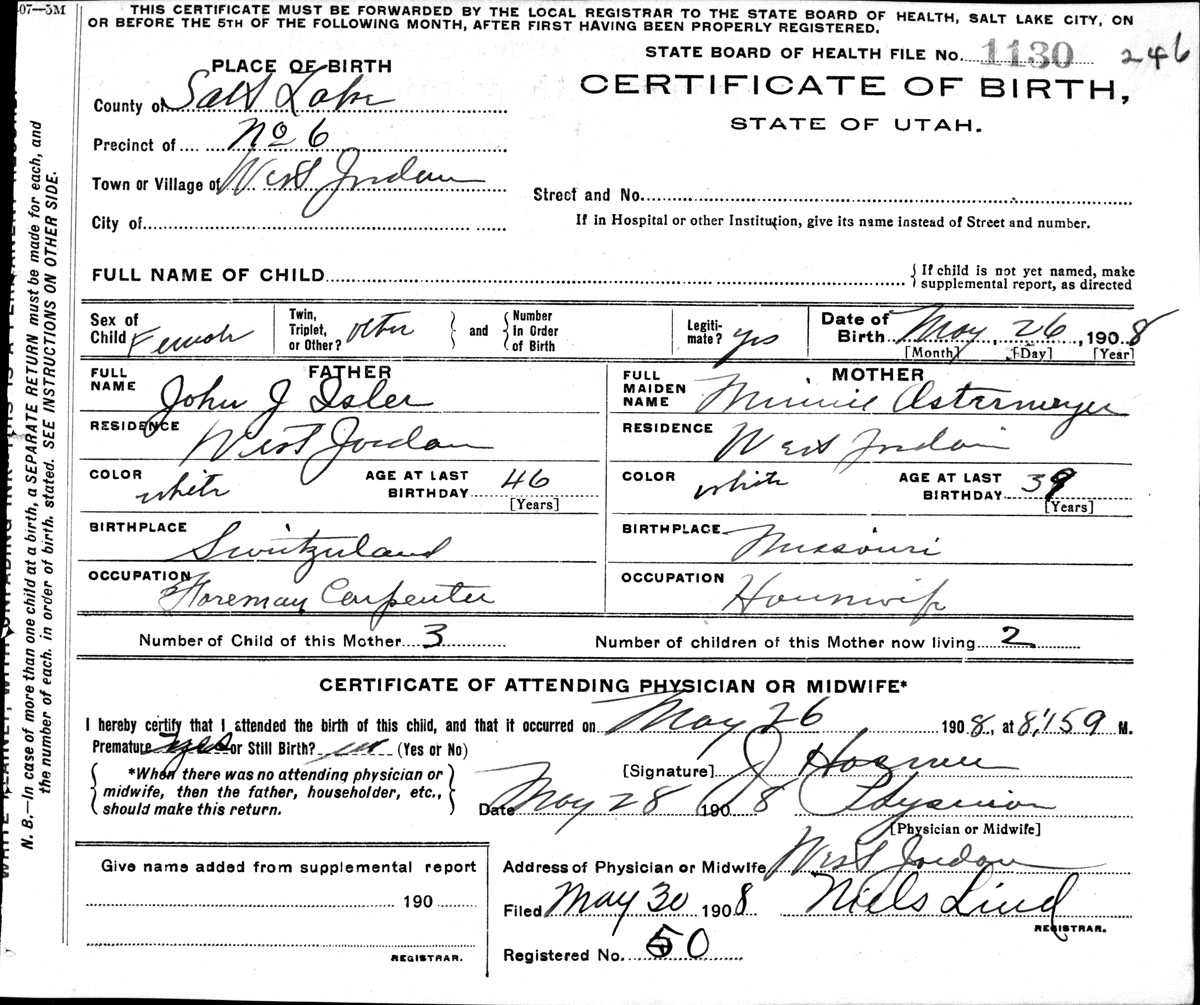 07—5M
THIS CERTIFICATE MUST BE FORWARDED BY THE LOCAL REGISTRAR TO THE STATE BOARD OF HEALTH, SALT LAKE CITY, ON
OR BEFORE THE 5TH OF THE FOLLOWING MONTH, AFTER FIRST HAVING BEEN PROPERLY REGISTERED.
STATE BOARD OF HEALTH FILE No. 1130 246
PLACE OF BIRTH
CERTIFICATE OF BIRTH,
STATE OF UTAH.
County of Salt Lake
Precinct of No 6
Town or Village of West Jordan
Street and No.
City of
If in Hospital or other Institution, give its name instead of Street and number.
FULL NAME OF CHILD
{ If child is not yet named, make
supplemental report, as directed
Sex of
Child Female
Twin,
Triplet,
or Other? other
} and {
Number
in Order
of Birth
Legiti-
mate? yes
Date of
Birth May 26, 1908
[Month] [Day] [Year]
FATHER
FULL
NAME John J Isler
RESIDENCE West Jordan
COLOR white
AGE AT LAST
BIRTHDAY 46
[Years]
BIRTHPLACE Switzerland
OCCUPATION Foreman Carpenter
MOTHER
FULL
MAIDEN
NAME Minnie Ostermeyer
RESIDENCE West Jordan
COLOR white
AGE AT LAST
BIRTHDAY 39
[Years]
BIRTHPLACE Missouri
OCCUPATION Housewife
Number of Child of this Mother 3
Number of children of this Mother now living 2
CERTIFICATE OF ATTENDING PHYSICIAN OR MIDWIFE*
I hereby certify that I attended the birth of this child, and that it occurred on May 26 1908, at 8,159 M.
Premature yes or Still Birth? (Yes or No)
{ *When there was no attending physician or
midwife, then the father, householder, etc.,
should make this return. }
[Signature] J
Date May 28 1908 Physician
[Physician or Midwife]
Address of Physician or Midwife West Jordan
Filed May 30 1908 Niels Lind
REGISTRAR.
Registered No. 50
Give name added from supplemental report
190
REGISTRAR.
N. B.—In case of more than one child at a birth, a SEPARATE RETURN must be made for each, and
the number of each, in order of birth, stated. SEE INSTRUCTIONS ON OTHER SIDE.